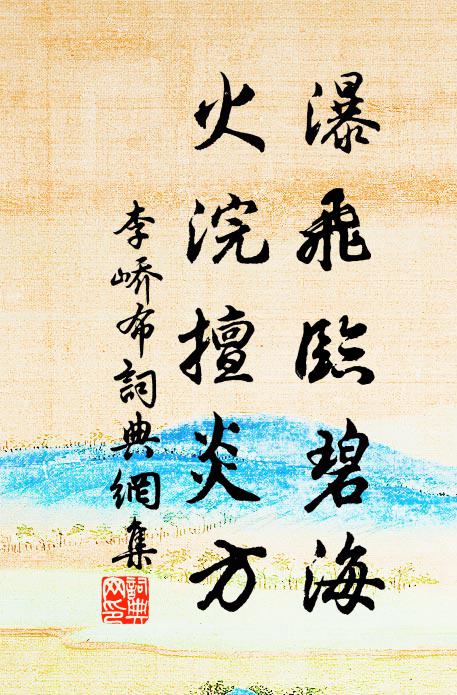 瀑飛臨碧海
火浣擅炎方
李嶠布詞典網集
詞典網印